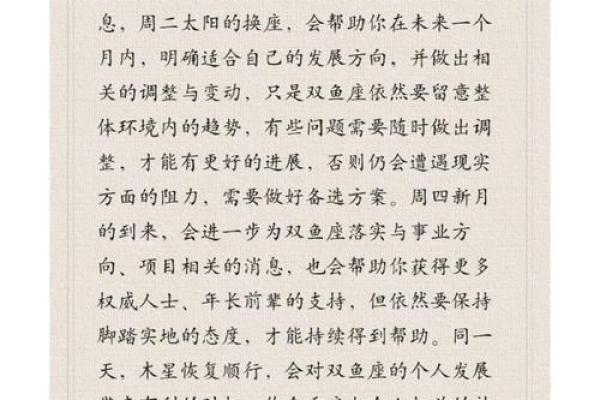 息，周二太阳的换座，会帮助你在未来一个
月内，明确适合自己的发展方向，并做出相
关的调整与变动，只是双鱼座依然要留意整
体环境内的趋势，有些问题需要随时做出调
整，才能有更好的进展，否则仍会遭遇现实
方面的阻力，需要做好备选方案。周四新月
的到来，会进一步为双鱼座落实与事业方
向、项目相关的消息，也会帮助你获得更多
权威人士、年长前辈的支持，但依然要保持
脚踏实地的态度，才能持续得到帮助。同一
天，木星恢复顺行，会对双鱼座的个人发展